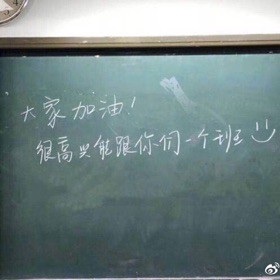 大家加油!
很高兴能跟你们一个班